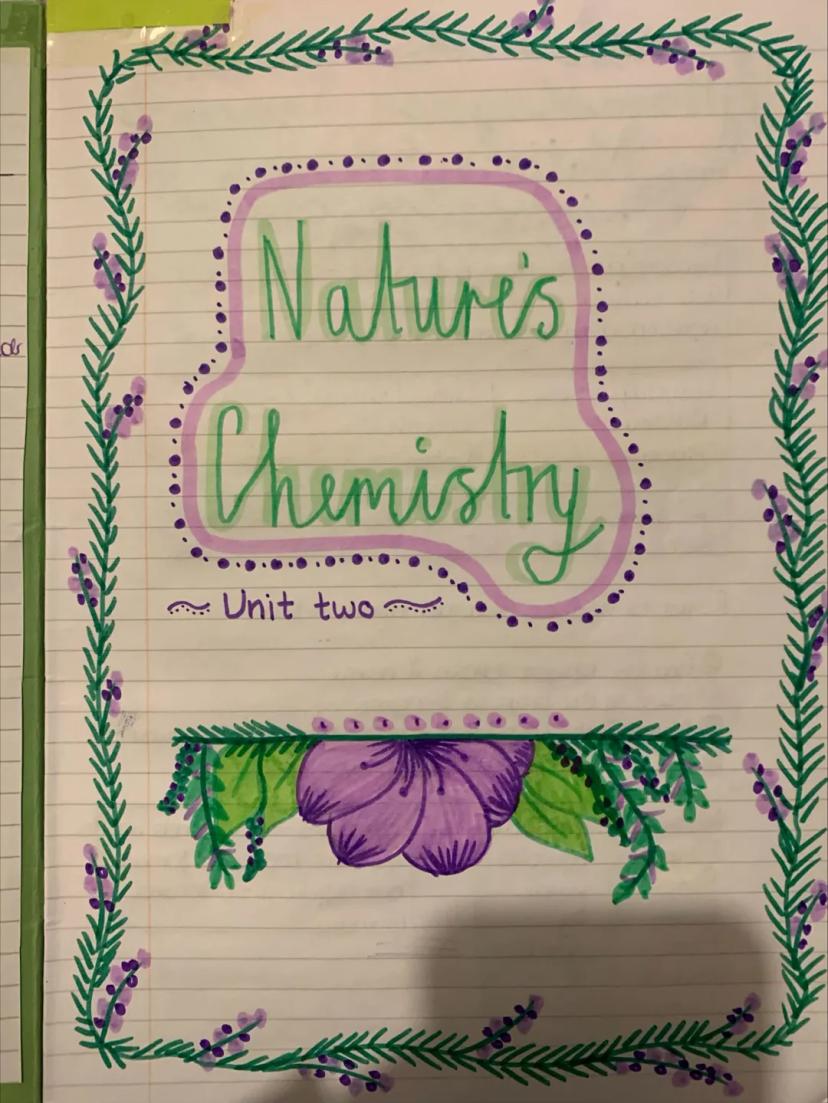 Nature's
Chemistry
~ Unit two ~